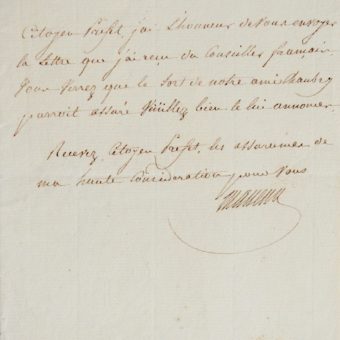 Citoyen Préfet, j'ai l'honneur de vous envoyer
la lettre que j'ai reçu du Conseiller français
vous verrez que le sort de notre ami
paroit assuré veuillez bien le lui annoncer.
Recevez, Citoyen Préfet, les assurances de
ma haute Considération pour vous